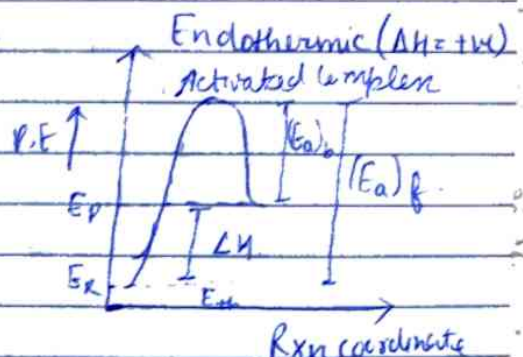 Endothermic (ΔH = +ve)
Activated Complex
P.E
(Ea)b
(Ea)f
Ep
ΔH
ER
Rxn coordinate